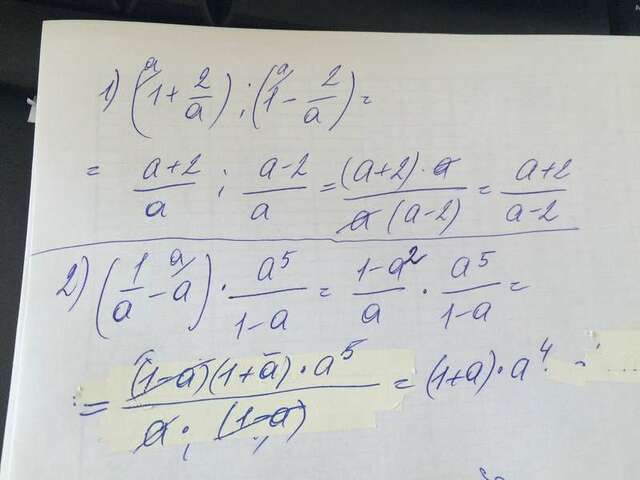 1) (1 + 2/a) : (1 - 2/a) =
= (a+2)/a : (a-2)/a = ((a+2)·a)/(a(a-2)) = (a+2)/(a-2)
2) (1/a - a) · a⁵/(1-a) = (1-a²)/a · a⁵/(1-a) =
= ((1-a)(1+a)·a⁵)/(a·(1-a)) = (1+a)·a⁴